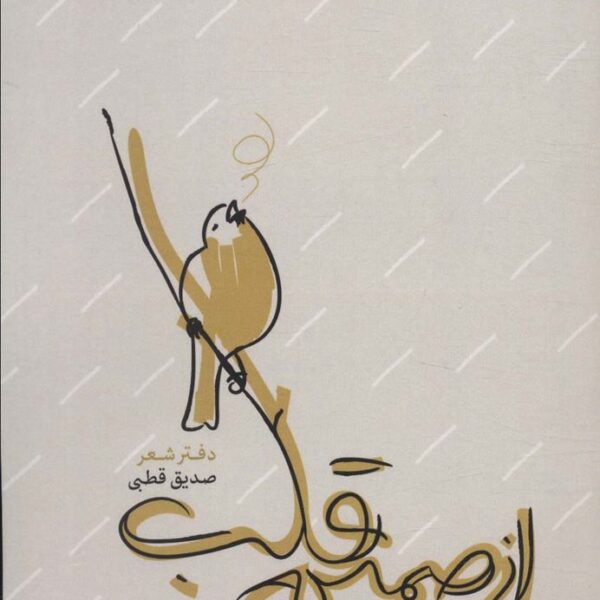 دفتر شعر
صدیق قطبی
از صمیم قلب